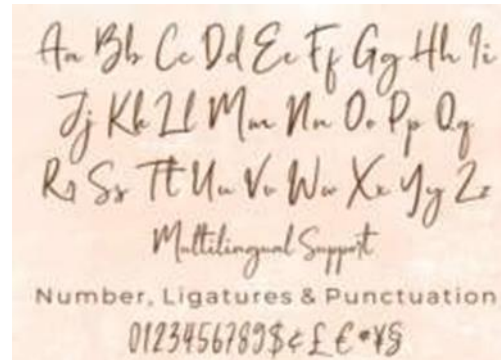 Aa Bb Cc Dd Ee Ff Gg Hh Ii
Jj Kk Ll Mm Nn Oo Pp Qq
Rr Ss Tt Uu Vv Ww Xx Yy Zz
Multilingual Support
Number, Ligatures & Punctuation
0123456789$¢£€*¥§